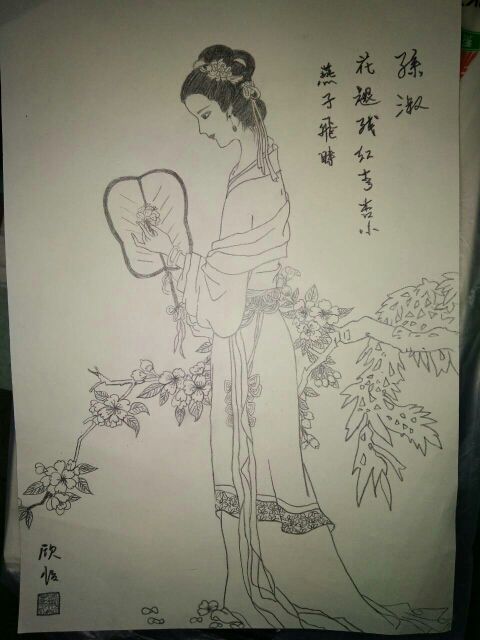 孫淑
花褪残红青杏小
燕子飛時
欣怡